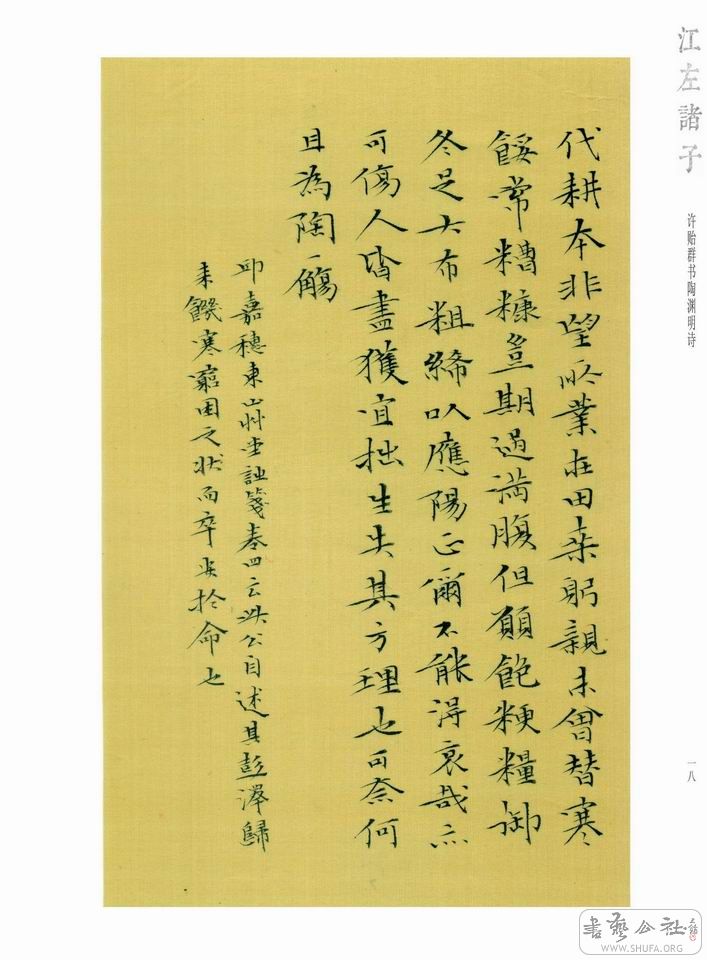 江左諸子
许贻群书陶渊明诗
一八
代耕本非望所業在田桑躬親未曾替寒
餒常糟糠豈期過满腹但願飽粳糧御
冬足大布粗絺以應陽正爾不能得哀哉亦
可傷人皆盡獲宜拙生失其方理也可奈何
且為陶一觴
邱嘉穗東山艸堂詿箋卷四云此公自述其彭澤歸
来饑寒窮困之状而卒安於命也
書藝公社
WWW.SHUFA.ORG